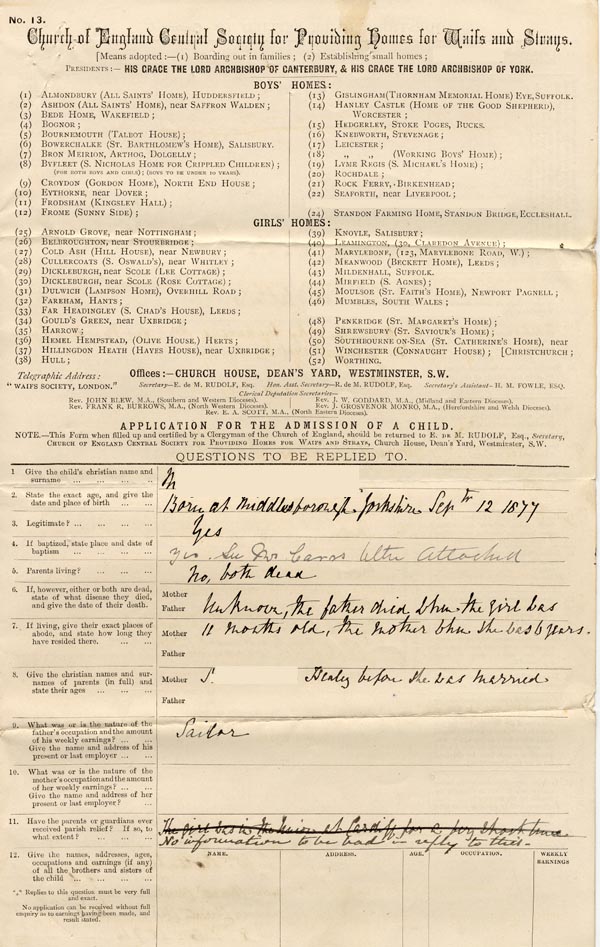 No. 13.
Church of England Central Society for Providing Homes for Waifs and Strays.
[Means adopted:—(1) Boarding out in families; (2) Establishing small homes;
Presidents:— HIS GRACE THE LORD ARCHBISHOP OF CANTERBURY, & HIS GRACE THE LORD ARCHBISHOP OF YORK.
BOYS' HOMES:
(1) Almondbury (All Saints' Home), Huddersfield;
(2) Ashdon (All Saints' Home), near Saffron Walden;
(3) Bede Home, Wakefield;
(4) Bognor;
(5) Bournemouth (Talbot House);
(6) Bowerchalke (St. Barthlomew's Home), Salisbury.
(7) Bron Meirion, Arthog, Dolgelly;
(8) Byfleet (S. Nicholas Home for Crippled Children);
(for both boys and girls); (boys to be under 10 years).
(9) Croydon (Gordon Home), North End House;
(10) Eythorne, near Dover;
(11) Frodsham (Kingsley Hall);
(12) Frome (Sunny Side);
(13) Gislingham (Thornham Memorial Home) Eye, Suffolk.
(14) Hanley Castle (Home of the Good Shepherd),
Worcester;
(15) Hedgerley, Stoke Poges, Bucks.
(16) Knebworth, Stevenage;
(17) Leicester;
(18) „ „ (Working Boys' Home);
(19) Lyme Regis (S. Michael's Home);
(20) Rochdale;
(21) Rock Ferry, Birkenhead;
(22) Seaforth, near Liverpool;
(24) Standon Farming Home, Standon Bridge, Eccleshall.
GIRLS' HOMES:
(25) Arnold Grove, near Nottingham;
(26) Belbroughton, near Stourbridge;
(27) Cold Ash (Hill House), near Newbury;
(28) Cullercoats (S. Oswald's), near Whitley;
(29) Dickleburgh, near Scole (Lee Cottage);
(30) Dickleburgh, near Scole (Rose Cottage);
(31) Dulwich (Lampson Home), Overhill Road;
(32) Fareham, Hants;
(33) Far Headingley (S. Chad's House), Leeds;
(34) Gould's Green, near Uxbridge;
(35) Harrow;
(36) Hemel Hempstead, (Olive House,) Herts;
(37) Hillingdon Heath (Hayes House), near Uxbridge;
(38) Hull;
(39) Knoyle, Salisbury;
(40) Leamington, (30, Claredon Avenue);
(41) Marylebone, (123, Marylebone Road, W.);
(42) Meanwood (Beckett Home), Leeds;
(43) Mildenhall, Suffolk.
(44) Mirfield (S. Agnes);
(45) Moulsoe (St. Faith's Home), Newport Pagnell;
(46) Mumbles, South Wales;
(48) Penkridge (St. Margaret's Home);
(49) Shrewsbury (St. Saviour's Home);
(50) Southbourne-on-Sea (St. Catherine's Home), near
(51) Winchester (Connaught House); [Christchurch;
(52) Worthing.
Telegraphic Address:
"WAIFS SOCIETY, LONDON."
Offices:—CHURCH HOUSE, DEAN'S YARD, WESTMINSTER, S.W.
Secretary—E. de M. RUDOLF, Esq. Hon. Asst. Secretary—R. de M. RUDOLF, Esq. Secretary's Assistant—H. M. FOWLE, ESQ.
Clerical Deputation Secretaries—
Rev. JOHN BLEW, M.A., (Southern and Western Dioceses). Rev. J. W. GODDARD, M.A., (Midland and Eastern Dioceses).
Rev. FRANK R. BURROWS, M.A., (North Western Dioceses). Rev. J. GROSVENOR MONRO, M.A., (Herefordshire and Welsh Dioceses).
Rev. E. A. SCOTT, M.A., (North Eastern Dioceses).
APPLICATION FOR THE ADMISSION OF A CHILD.
NOTE.—This Form when filled up and certified by a Clergyman of the Church of England, should be returned to E. de M. RUDOLF, Esq., Secretary,
Church of England Central Society for Providing Homes for Waifs and Strays, Church House, Dean's Yard, Westminster, S.W.
QUESTIONS TO BE REPLIED TO.
1 Give the child's christian name and
surname ... ... ... ...
M
2. State the exact age, and give the
date and place of birth ... ...
Born at Middlesborough Yorkshire Sepr 12 1877
3. Legitimate? ... ... ... ...
Yes
4. If baptized, state place and date of
baptism ... ... ... ...
Yes. See letter Attached
5. Parents living? ... ... ...
No, both dead
6. If, however, either or both are dead,
state of what disease they died,
and give the date of their death.
Mother
Father
Unknown, the father died when the girl was
7. If living, give their exact places of
abode, and state how long they
have resided there. ... ...
Mother
11 months old, the mother when she was 6 years.
Father
8. Give the christian names and sur-
names of parents (in full) and
state their ages ... ... ...
Mother
S. Healey before she was married
Father
9. What was or is the nature of the
father's occupation and the amount
of his weekly earnings? ... ...
Give the name and address of his
present or last employer ... ...
Sailor
10. What was or is the nature of the
mother's occupation and the amount
of her weekly earnings? ...
Give the name and address of her
present or last employer? ...
11. Have the parents or guardians ever
received parish relief? If so, to
what extent? ... ... ...
The girl was in the Union at Cardiff for a very short time
No information to be had in reply to this.
12. Give the names, addresses, ages,
occupations and earnings (if any)
of all the brothers and sisters of
the child ... ... ... ...
NAME. ADDRESS. AGE. OCCUPATION. WEEKLY
EARNINGS
"„" Replies to this question must be very full
and exact.
No application can be received without full
enquiry as to earnings having been made, and
result stated.